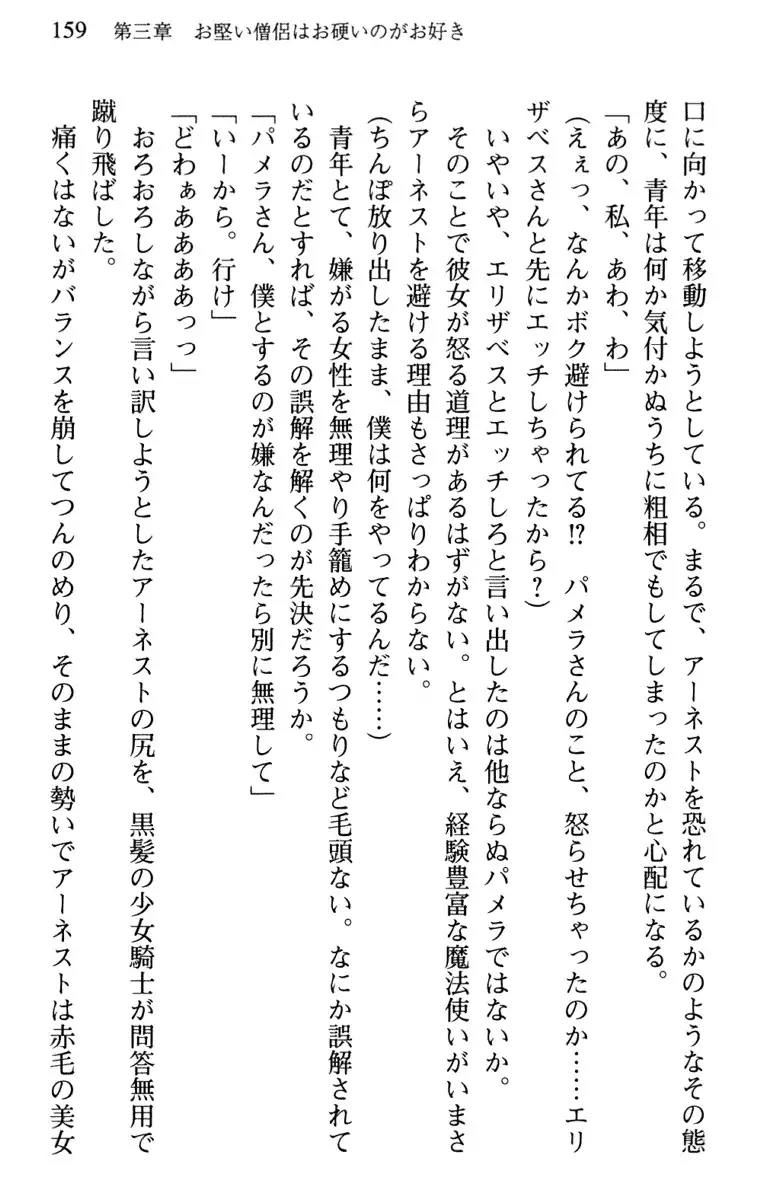 159 第三章 お堅い僧侶はお硬いのがお好き
口に向かって移動しようとしている。まるで、アーネストを恐れているかのようなその態
度に、青年は何か気付かぬうちに粗相でもしてしまったのかと心配になる。
「あの、私、あわ、わ」
(えぇっ、なんかボク避けられてる!? パメラさんのこと、怒らせちゃったのか……エリ
ザベスさんと先にエッチしちゃったから?)
いやいや、エリザベスとエッチしろと言い出したのは他ならぬパメラではないか。
そのことで彼女が怒る道理があるはずがない。とはいえ、経験豊富な魔法使いがいまさ
らアーネストを避ける理由もさっぱりわからない。
(ちんぽ放り出したまま、僕は何をやってるんだ……)
青年とて、嫌がる女性を無理やり手籠めにするつもりなど毛頭ない。なにか誤解されて
いるのだとすれば、その誤解を解くのが先決だろうか。
「パメラさん、僕とするのが嫌なんだったら別に無理して」
「いーから。行け」
「どわぁああああっっ」
おろおろしながら言い訳しようとしたアーネストの尻を、黒髪の少女騎士が問答無用で
蹴り飛ばした。
痛くはないがバランスを崩してつんのめり、そのままの勢いでアーネストは赤毛の美女